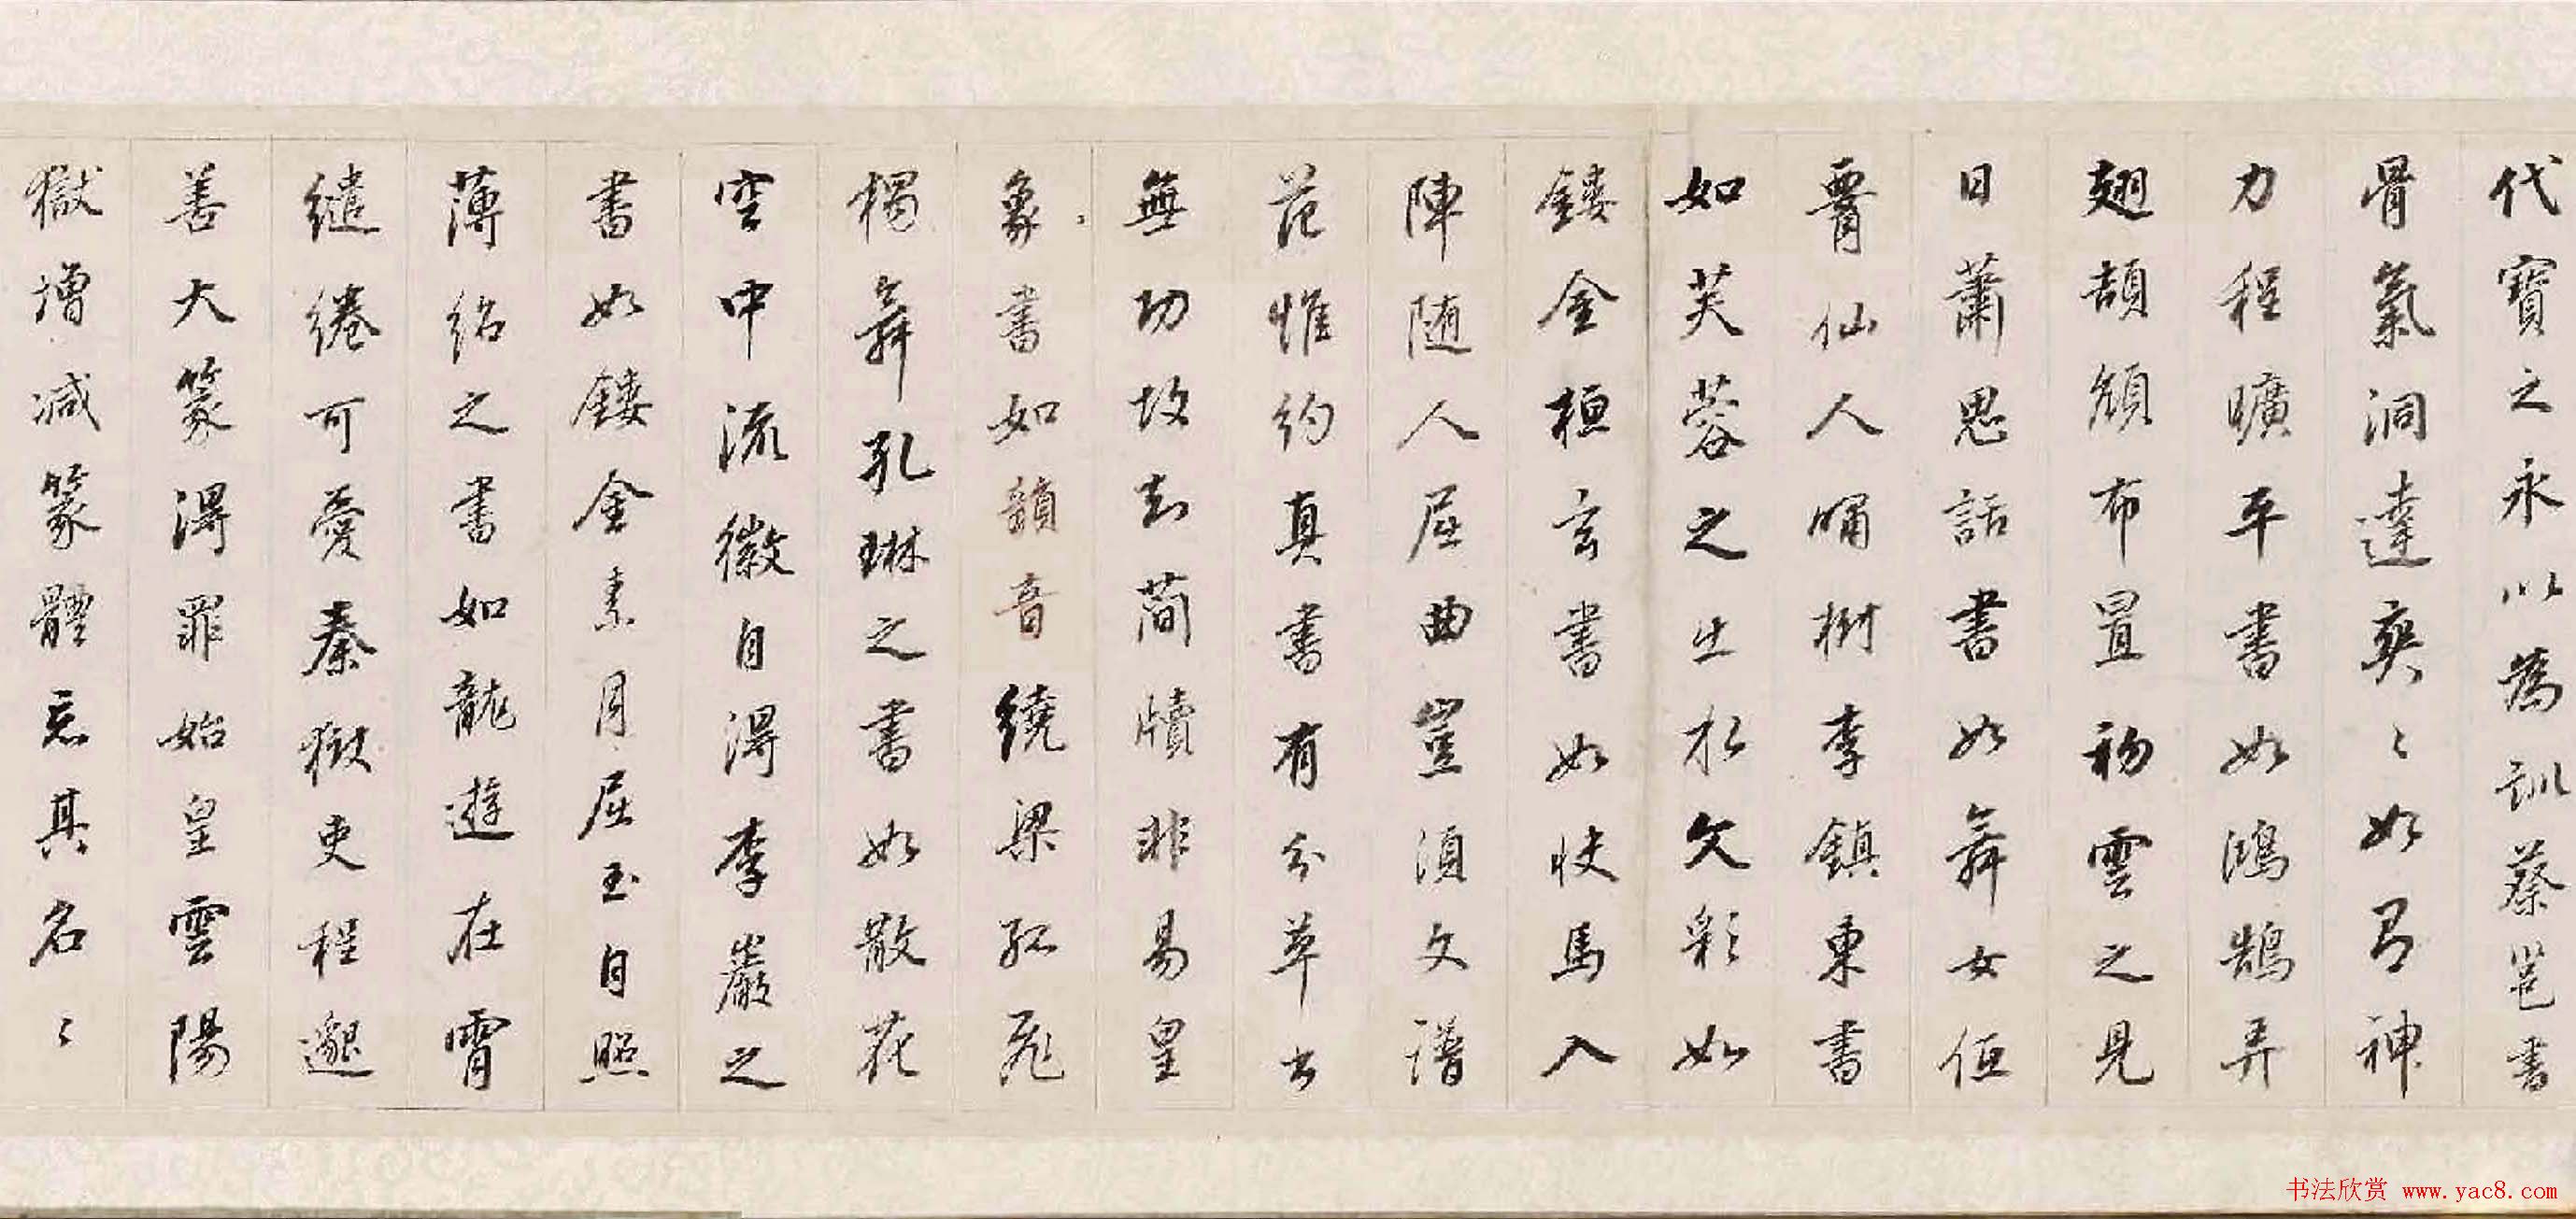 代寶之永以為訓蔡邕書
骨氣洞達爽〻如有神
力程曠平書如鴻鵠弄
翅頡頏布置初雲之見
日蕭思話書如舞女低
䯨仙人嘯樹李鎮東書
如芙蓉之出水文彩如
鏤金桓玄書如快馬入
陣隨人屈曲豈須文譜
范惟約真書有分草書
無功故知簡牘非易皇
象書如韻音繞梁孤飛
獨舞孔琳之書如散花
空中流徽自得李巖之
書如鏤金素月屈玉自照
薄紹之書如龍遊在霄
繾綣可愛秦獄吏程邈
善大篆得罪始皇雲陽
獄增減篆體忘其名〻
书法欣赏 www.yac8.com